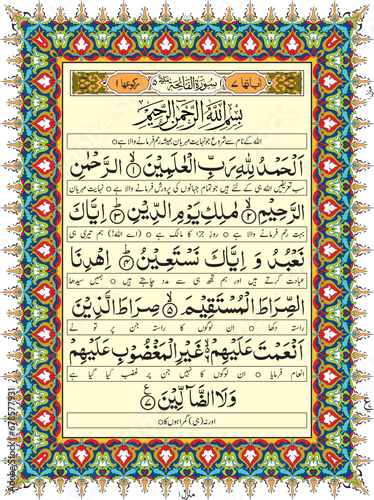 اٰیَاتُهَا ۷ سُوْرَةُ الْفَاتِحَةِ مَكِّيَّةٌ ۵ رُكُوْعُهَا ۱
بِسْمِ اللّٰهِ الرَّحْمٰنِ الرَّحِيْمِ
اللہ کے نام سے شروع جو نہایت مہربان ہمیشہ رحم فرمانے والا ہے ○
اَلْحَمْدُ لِلّٰهِ رَبِّ الْعٰلَمِيْنَ ۙ﴿۱﴾ الرَّحْمٰنِ
سب تعریفیں اللہ ہی کے لئے ہیں جو تمام جہانوں کی پرورش فرمانے والا ہے ○ نہایت مہربان
الرَّحِيْمِ ۙ﴿۲﴾ مٰلِكِ يَوْمِ الدِّيْنِ ؕ﴿۳﴾ اِيَّاكَ
بہت رحم فرمانے والا ہے ○ روزِ جزا کا مالک ہے ○ (اے اللہ!) ہم تیری ہی
نَعْبُدُ وَ اِيَّاكَ نَسْتَعِيْنُ ؕ﴿۴﴾ اِهْدِنَا
عبادت کرتے ہیں اور ہم تجھ ہی سے مدد چاہتے ہیں ○ ہمیں سیدھا
الصِّرَاطَ الْمُسْتَقِيْمَ ۙ﴿۵﴾ صِرَاطَ الَّذِيْنَ
راستہ دکھا ○ ان لوگوں کا راستہ جن پر تو نے
اَنْعَمْتَ عَلَيْهِمْ ۙ۬﴿۶﴾ غَيْرِ الْمَغْضُوْبِ عَلَيْهِمْ
انعام فرمایا ○ ان لوگوں کا نہیں جن پر غضب کیا گیا ہے
وَلَا الضَّآلِّيْنَ ﴿۷﴾ ع
اور نہ (ہی) گمراہوں کا ○
منزل
Adobe Stock | #678577931